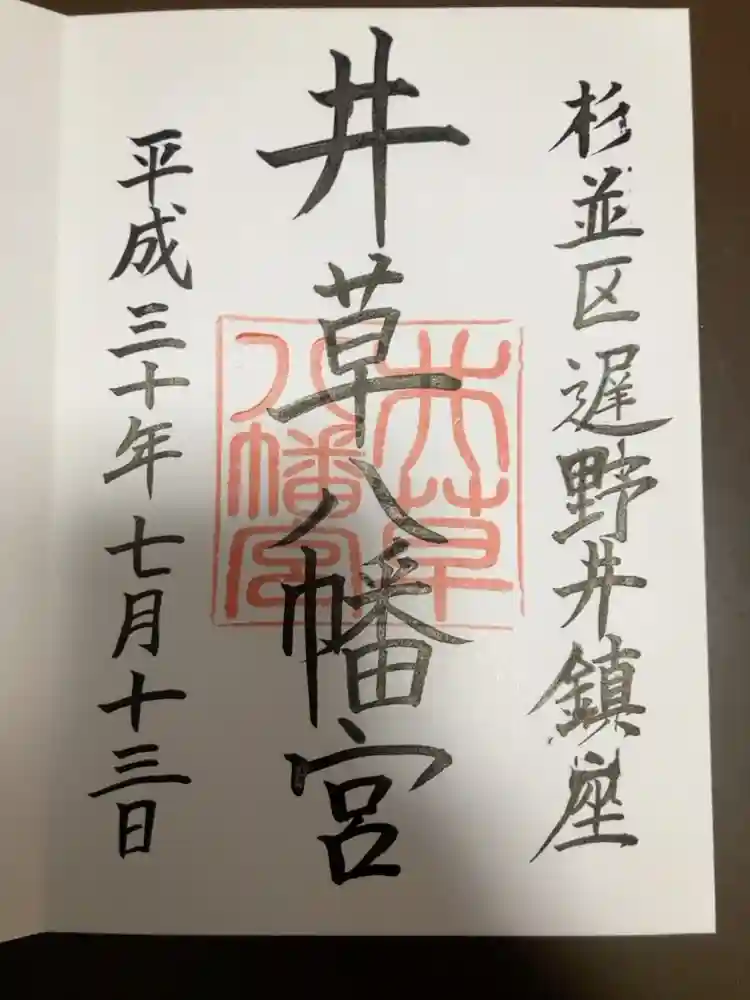 杉並区遅野井鎮座
井草八幡宮
井草
八幡宮
平成三十年七月十三日